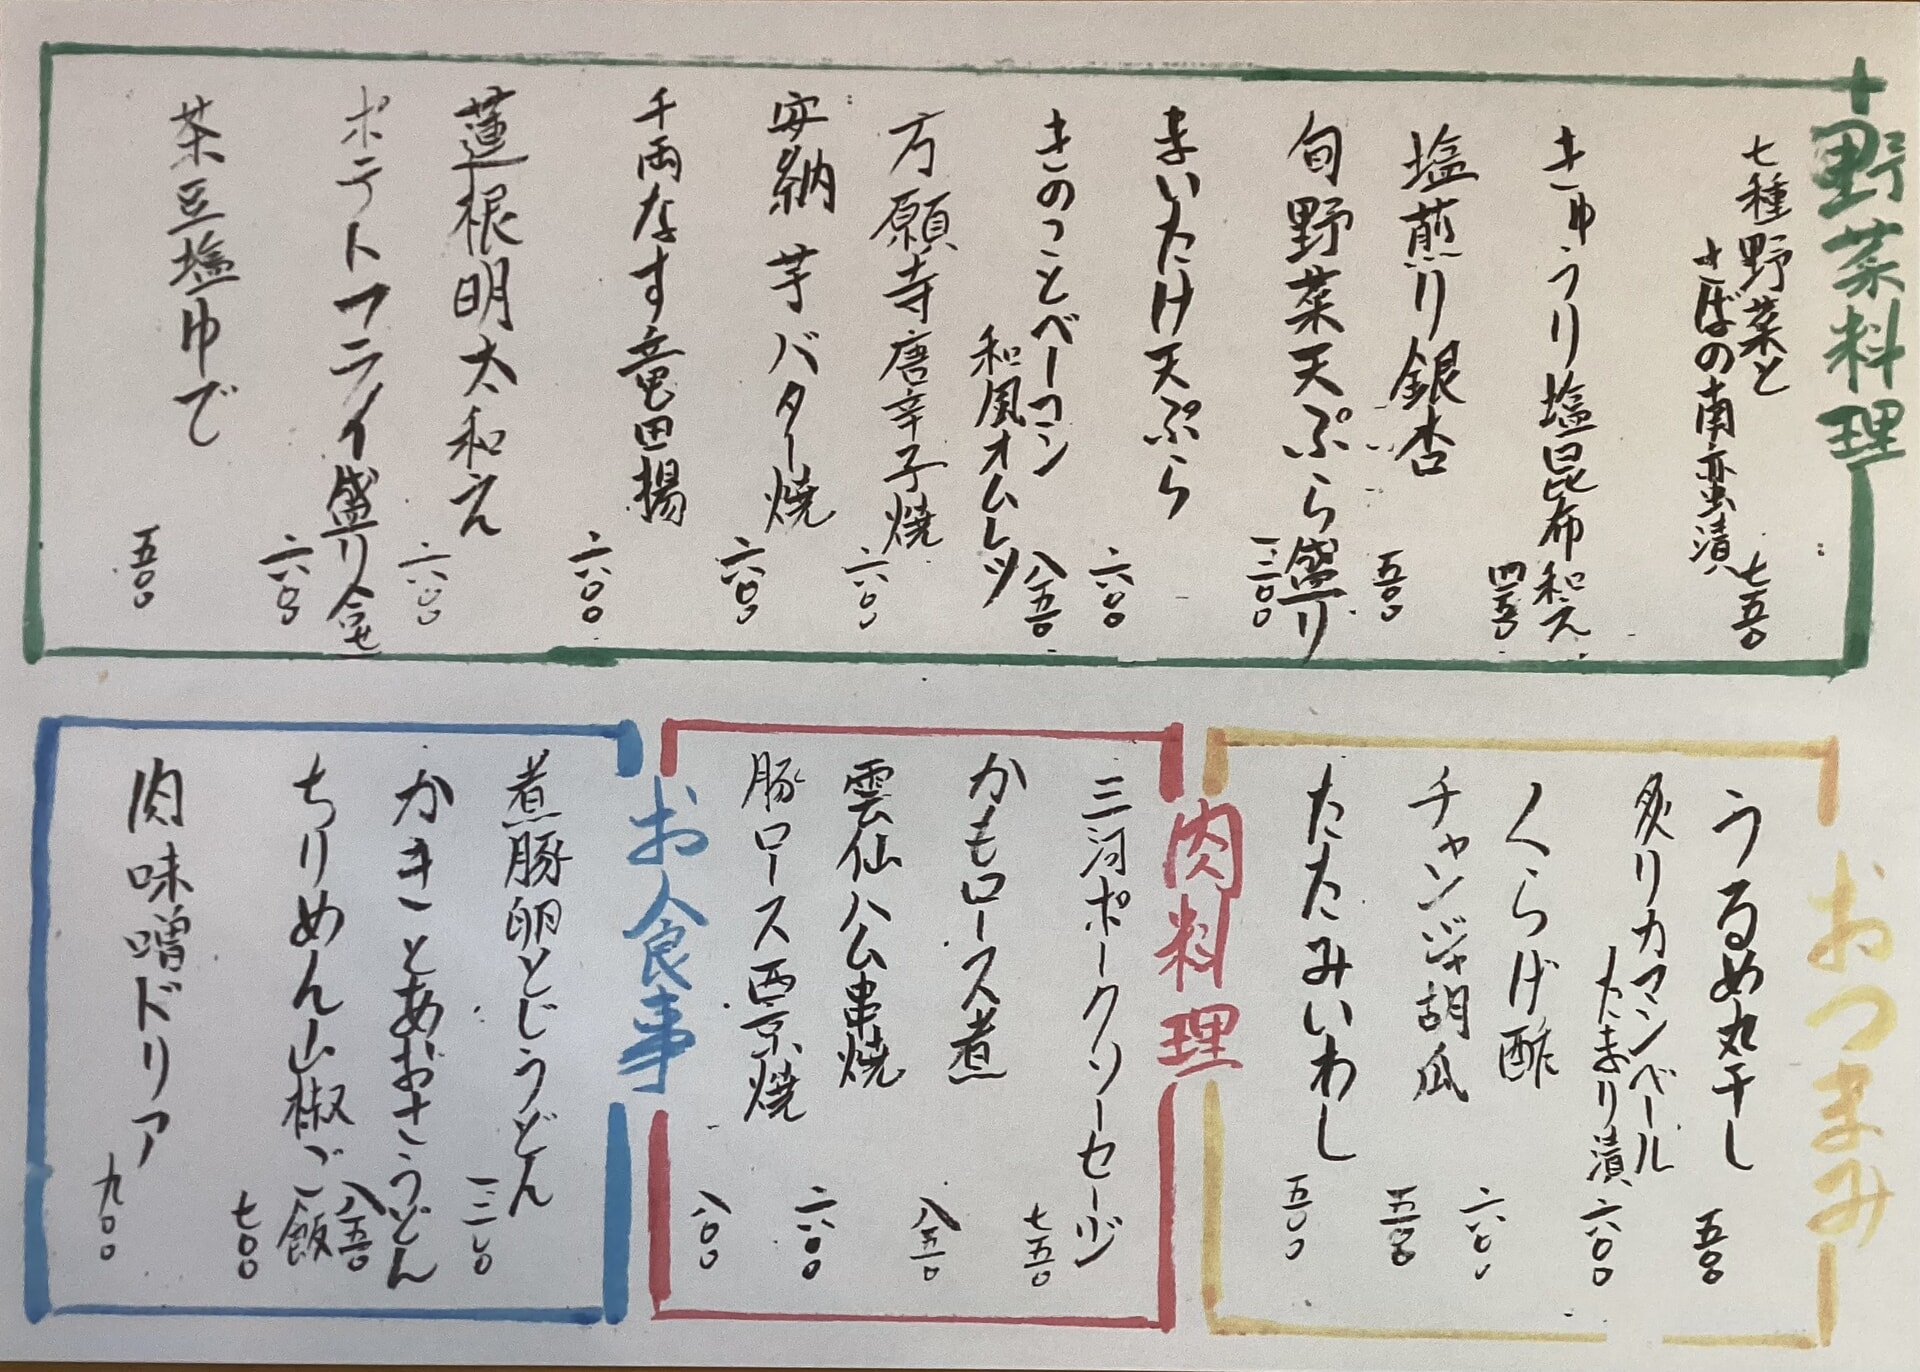 野菜料理
七種野菜と
さばの南蛮漬
七五〇
きゅうり塩昆布和え
四五〇
塩煎り銀杏
五〇〇
旬野菜天ぷら盛り
一三〇〇
まいたけ天ぷら
六〇〇
きのことベーコン
和風オムレツ
八五〇
万願寺唐辛子焼
六〇〇
安納芋バター焼
六〇〇
千両なす竜田揚
六〇〇
蓮根明太和え
六〇〇
ポテトフライ盛り合せ
六〇〇
茶豆塩ゆで
五〇〇
おつまみ
うるめ丸干し
五〇〇
炙りカマンベール
たまり漬
六〇〇
くらげ酢
六〇〇
チャンジャ胡瓜
五五〇
たたみいわし
五〇〇
肉料理
三河ポークソーセージ
七五〇
かもロース煮
八五〇
雲仙ハム串焼
六〇〇
豚ロース西京焼
八〇〇
お食事
煮豚卵とじうどん
かきとあおさうどん
八五〇
ちりめん山椒ご飯
七〇〇
肉味噌ドリア
九〇〇